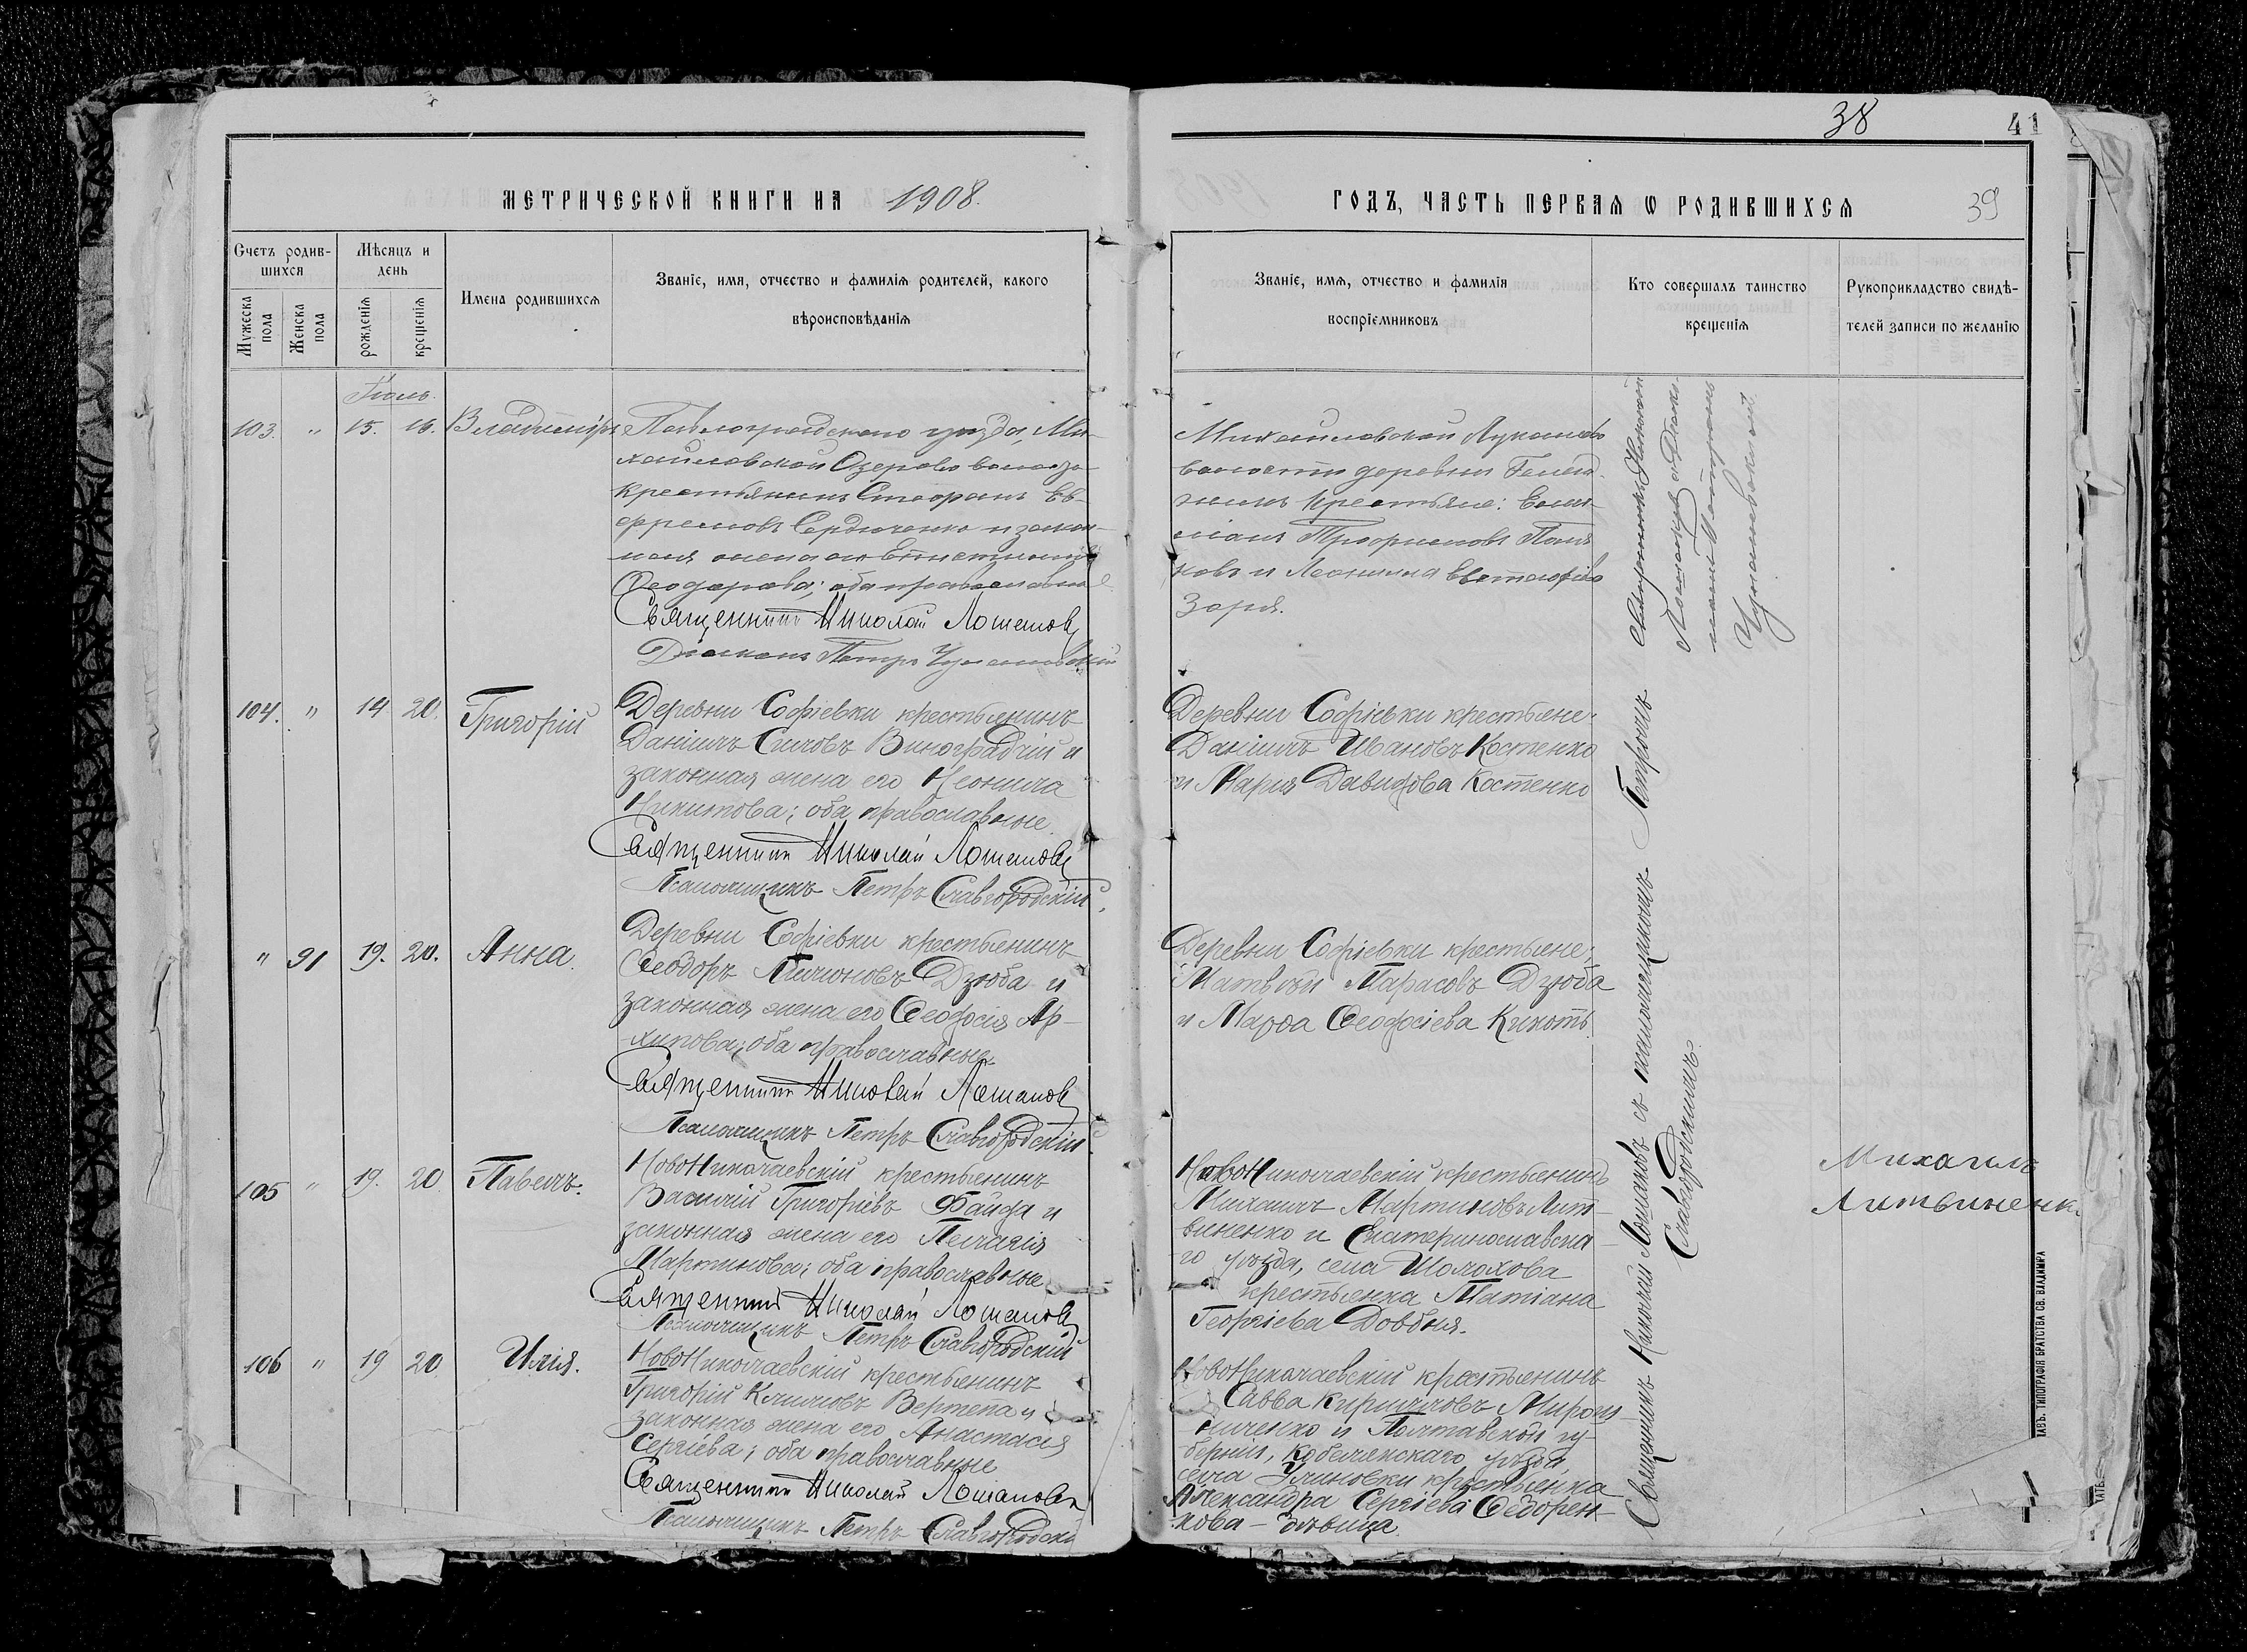 38
41
МЕТРИЧЕСКОЙ КНИГИ НА 1908.
ГОДЪ, ЧАСТЬ ПЕРВАЯ Ѡ РОДИВШИХСЯ
39
Счетъ родив-
шихся
Мужеска пола
Женска пола
Мѣсяцъ и
день
рожденія
крещенія
Имена родившихся
Званіе, имя, отчество и фамилія родителей, какого
вѣроисповѣданія
Званіе, имя, отчество и фамилія
воспріемниковъ
Кто совершалъ таинство
крещенія
Рукоприкладство свидѣ-
телей записи по желанію
Іюль.
103. " 15. 16. Владиміръ
Павлоградскаго уѣзда, Ми-
хайловской
крестьянинъ Стефанъ Ев-
фремовъ Сердюченко и закон-
ная жена его
Феодорова; оба православные
Священникъ Николай Лошаковъ
Діаконъ Петръ
Михайловской
волости деревни
крестьяне:
Трофимовъ
ковъ и
Заря.
104. " 14 20. Григорій
Деревни Софіевки крестьянинъ
Даніилъ Виноградній и
законная жена его Неонила
Никитова; оба православные.
Священникъ Николай Лошаковъ
Псаломщикъ Петръ Славгородскій.
Деревни Софіевки крестьяне:
Даніилъ Ивановъ Костенко
и Марія Давидова Костенко
" 91 19. 20. Анна.
Деревни Софіевки крестьянинъ
Ѳеодоръ Дзюба и
законная жена его Ѳеодосія Ар-
хипова; оба православные
Священникъ Николай Лошаковъ
Псаломщикъ Петръ Славгородскій
Деревни Софіевки крестьяне;
Матвѣй Тарасовъ Дзюба
и Марѳа Ѳеодосіева Кикоть
105 " 19. 20 Павелъ.
НовоНиколаевскій крестьянинъ
Василій Григоріевъ Файда и
законная жена его Пелагія
Мартинова; оба православные
Священникъ Николай Лошаковъ
Псаломщикъ Петръ Славгородскій
НовоНиколаевскій крестьянинъ
Михаилъ Мартиновъ Лит-
виненко и Екатеринославска-
го уѣзда, села Шолохова
крестьянка Татіана
Георгіева Довбня.
Михаилъ
Литвиненко
106 " 19 20. Илія.
НовоНиколаевскій крестьянинъ
Григорій Климовъ Вертепа и
законная жена его Анастасія
Сергіева; оба православные
Священникъ Николай Лошаковъ
Псаломщикъ Петръ Славгородскій
НовоНиколаевскій крестьянинъ
Савва Кирилловъ Мирош-
ниченко и Полтавской гу-
берніи, Кобелякскаго уѣзда,
села крестьянка
Александра Сергіева Ѳедорен-
кова – дѣвица.
Священникъ Николай
Лошаковъ съ Діако-
номъ Петромъ
Священникъ Николай Лошаковъ съ псаломщикомъ Петромъ
Славгородскимъ.
ПАВЪ. ТИПОГРАФІЯ БРАТСТВА СВ. ВЛАДИМІРА